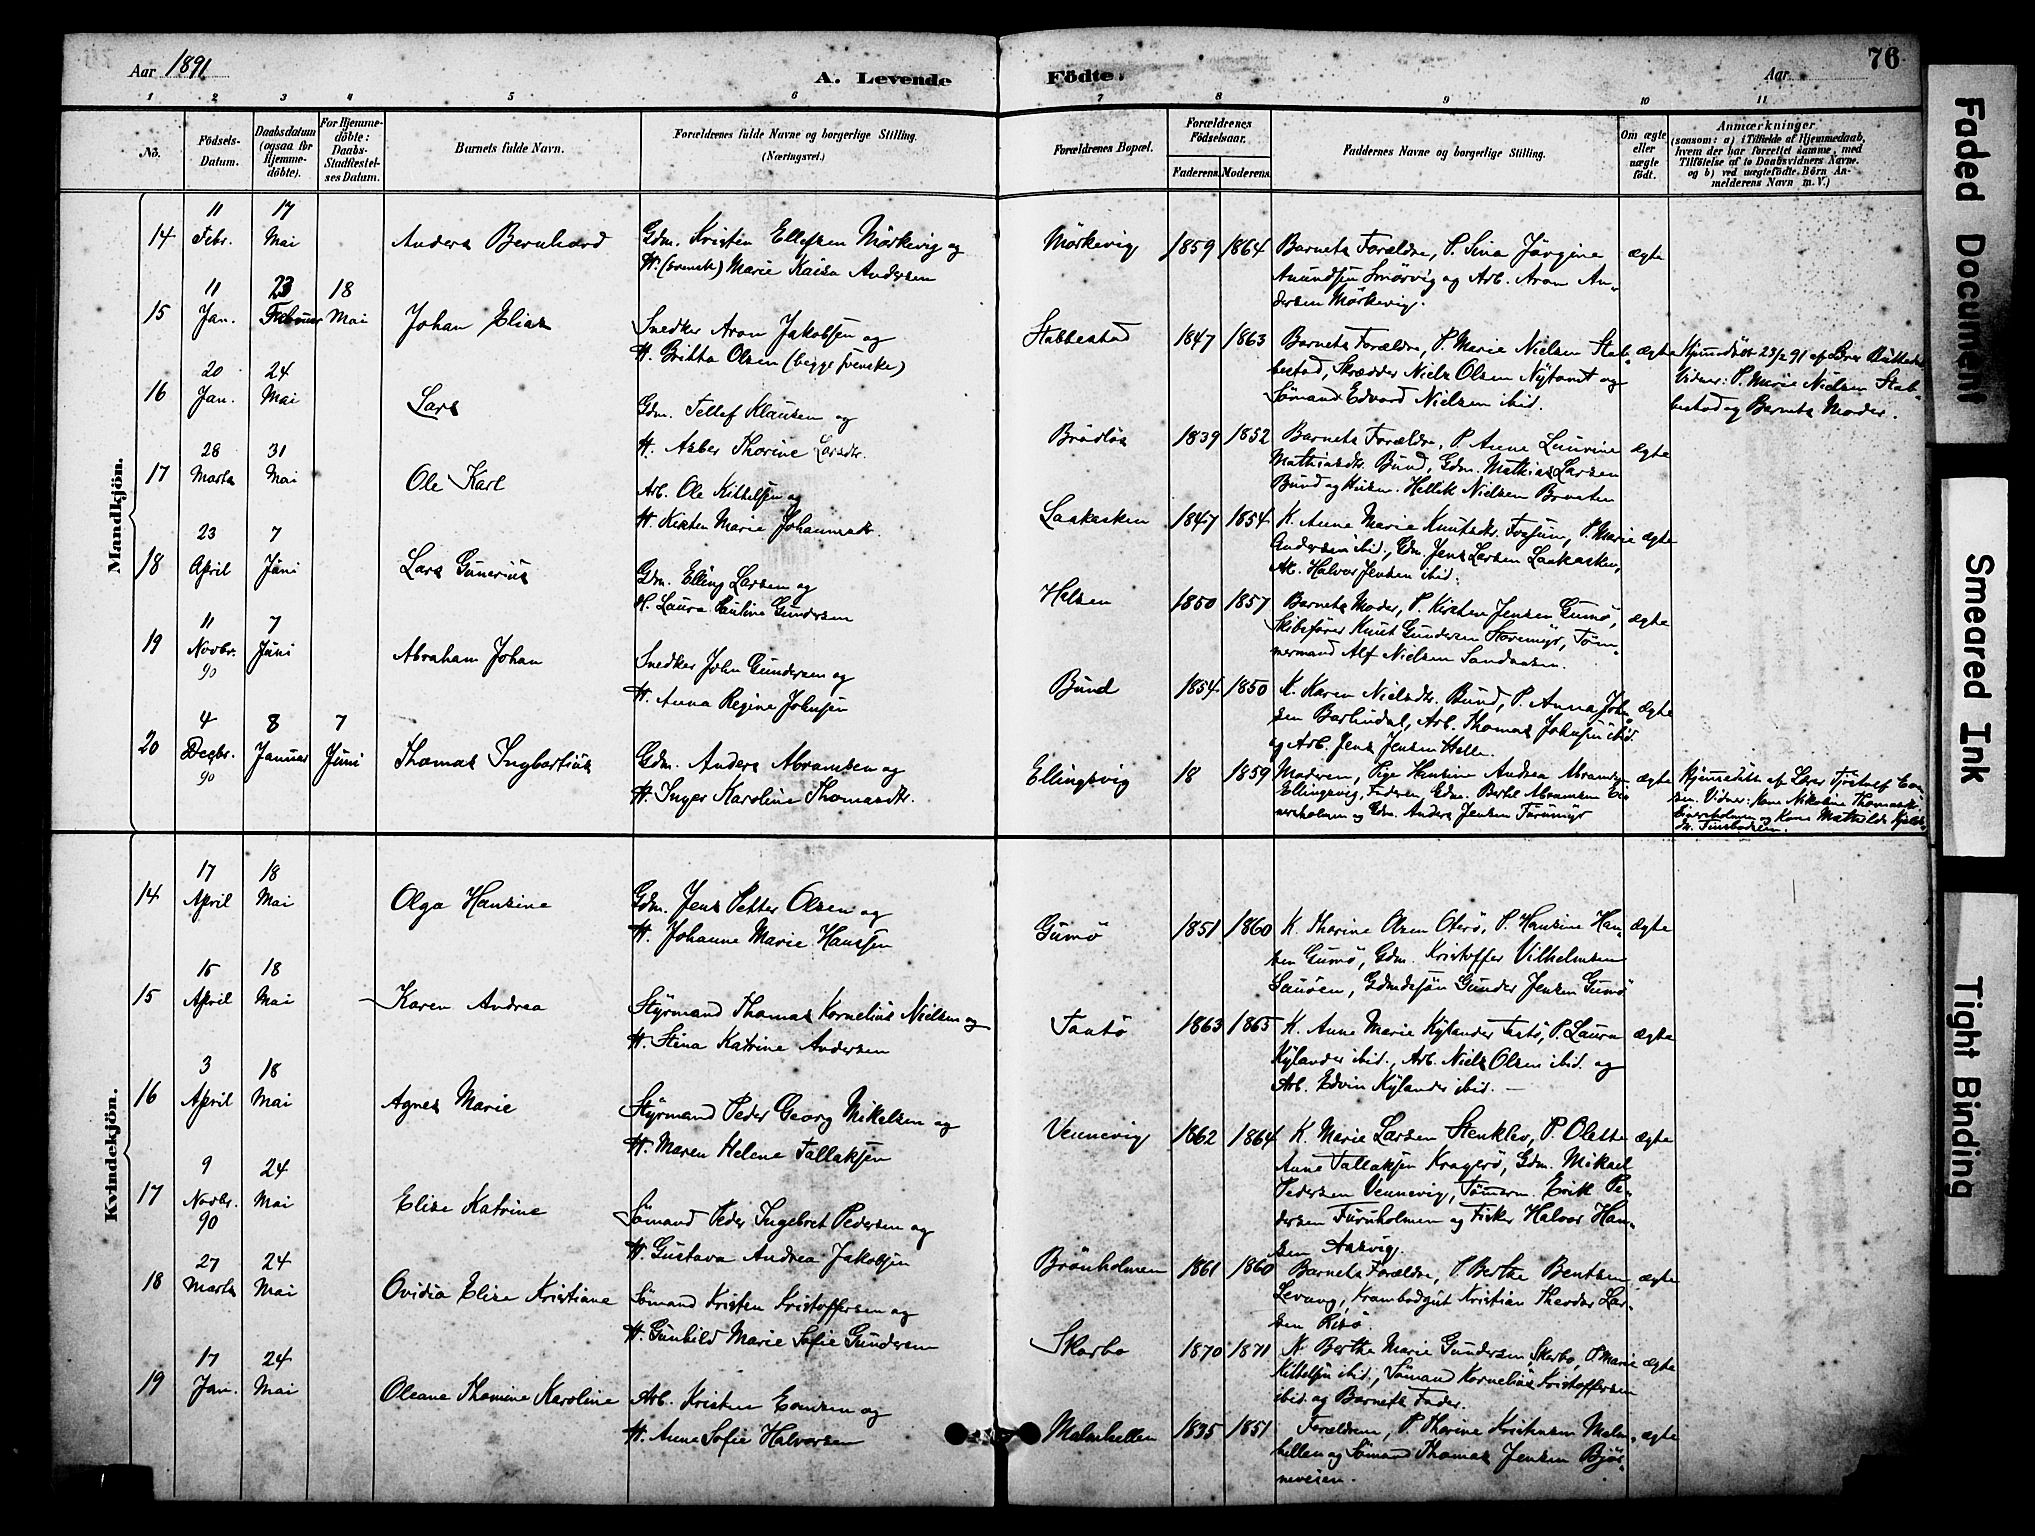 Aar 1891
A. Levende
Födte.
Aar
76
1 2 3 4 5 6 7 8 9 10 11
No.
Födsels-Datum.
Daabsdatum (ogsaa for Hjemme-döbte).
For Hjemme-döbte: Daabs-Stadfæstel-ses Datum.
Barnets fulde Navn.
Forældrenes fulde Navne og borgerlige Stilling. (Næringsvei.)
Forældrenes Bopæl.
Forældrenes Födselsaar.
Faderens. Moderens.
Faddernes Navne og borgerlige Stilling.
Om ægte eller uægte födt.
Anmærkninger
(saasom: a) i Tilfælde af Hjemmedaab, hvem der har forrettet samme, med Tilföielse af to Daabsvidners Navne. og b) ved uægtefödte Börn An-melderens Navn m. V.)
Mandkjön.
14 11 Febr. 17 Mai Anders Bernhard
Gdm. Kristen Ellefsen Mörkevig og
H. (svensk) Marie Kaisa Andersen
Mörkevig 1859 1864
Barnets Forældre, P. Sina Jörgine
Amundsen Smörvig og Arb. Aron An-
dersen Mörkevig.
ægte
15 11 Jan. 23 Februar 18 Mai Johan Elias
Snedker Aron Jakobsen og
H. Britta Olsen (begge svenske)
Stabbestad 1847 1863
Barnets Forældre, P. Marie Nielsen Stab-
bestad, Skrædder Niels Olsen og
Sömand Edvard Nielsen ibid.
ægte
Hjemmedöbt 23/2 91 af
Vidner: P. Marie Nielsen Stab-
bestad og Barnets Moder.
16 20 Jan. 24 Mai Lars
Gdm. Tellef Klausen og
H. Asber Thorine Larsdtr.
Brödlös 1839 1852
Barnets Forældre, P. Anne Laurine
Mathiasdtr. Bund, Gdm. Mathias Larsen
Bund og Husm. Hellik Nielsen Braaten
ægte
17 28 Marts 31 Mai Ole Karl
Arb. Ole Kittelsen og
H. Kirsten Marie Johannesdtr.
Laakasken 1847 1854
K. Anne Marie Knutsdtr. Fossum, P. Marie
Andersen ibid., Gdm. Jens Larsen Laakasken,
Arb. Halvor Jensen ibid.
ægte
18 23 April 7 Juni Lars Gunerius
Gdm. Elling Larsen og
H. Laura Pauline Gundersen
Helsen 1850 1857
Barnets Moder, P. Kirsten Jensen Gumö,
Skibsförer Knut Gundersen Storemyr, Töm-
mermand Alf Nielsen Sandaasen.
ægte
19 11 Novbr. 90 7 Juni Abraham Johan
Snedker John Gundersen og
H. Anna Regine Johnsen
Bund 1854 1850
K. Karen Nielsdtr. Bund, P. Anna John-
sen Barlindal, Arb. Thomas Johnsen ibid.
og Arb. Jens Jensen Helle.
ægte
20 4 Decbr. 90 8 Januar 7 Juni Thomas Ingbartius
Gdm. Anders Abramsen og
H. Inger Karoline Thomasdtr.
Ellingsvig 18 1859
Moderen, Pige Hansine Andrea Abramsen
Ellingsvig, Faderen, Gdm. Bertel Abramsen Ei-
nersholmen og Gdm. Anders Jensen Furumyr
ægte
Hjemmedöbt af Lærer Tjöstolf Even-
sen. Vidner: Kone Nikoline Thomasdtr.
Einersholmen og Kone Mathilde
Kvindekjön.
14 17 April 18 Mai Olga Hansine
Gdm. Jens Petter Olsen og
H. Johanne Marie Hanssen
Gumö 1851 1860
K. Thorine Olsen Oterö, P. Hansine Han-
sen Gumö, Gdm. Kristoffer Vilhelmsen
Sauöen, Gdmdsön Gunder Jensen Gumö
ægte
15 15 April 18 Mai Karen Andrea
Styrmand Thomas Kornelius Nielsen og
H. Stina Katrine Andersen
Taatö 1863 1865
K. Anne Marie Kylander Taatö, P. Laura
Kylander ibid., Arb. Niels Olsen ibid. og
Arb. Edvin Kylander ibid.
ægte
16 3 April 18 Mai Agnes Marie
Styrmand Peder Georg Mikelsen og
H. Maren Helene Tallaksen
Vennevig 1862 1864
K. Marie Larsen Stenklev, P. Olette
Anne Tallaksen Kragerö, Gdm. Mikael
Pedersen Vennevig, Tömerm. Erik Pe-
dersen Furuholmen og Fisker Halvor Han-
sen Aasvig.
ægte
17 9 Novbr. 90 24 Mai Elise Katrine
Sömand Peder Ingebret Pedersen og
H. Gustava Andrea Jakobsen
Brönholmen 1861 1860
Barnets Forældre, P. Berthe Bentsen
Levang, Krambodgut Kristian Theodor Lar-
sen Risö.
ægte
18 27 Marts 24 Mai Ovidia Elise Kristiane
Sömand Kristen Kristoffersen og
H. Gunhild Marie Sofie Gundersen
Skarbo 1870 1871
K. Berthe Marie Gundersen Skarbo, P. Marie
Kittelsen ibid., Sömand Kornelius Kristoffersen
ibid. og Barnets Fader.
ægte
19 17 Jan. 24 Mai Oleane Thomine Karoline
Arb. Kristen Evensen og
H. Anne Sofie Halvorsen
Malmhellen 1835 1851
Forældrene, P. Thorine Kristensen Malm-
hellen og Sömand Thomas Jensen Björ-
neveien.
ægte
Faded Document
Smeared Ink
Tight Binding